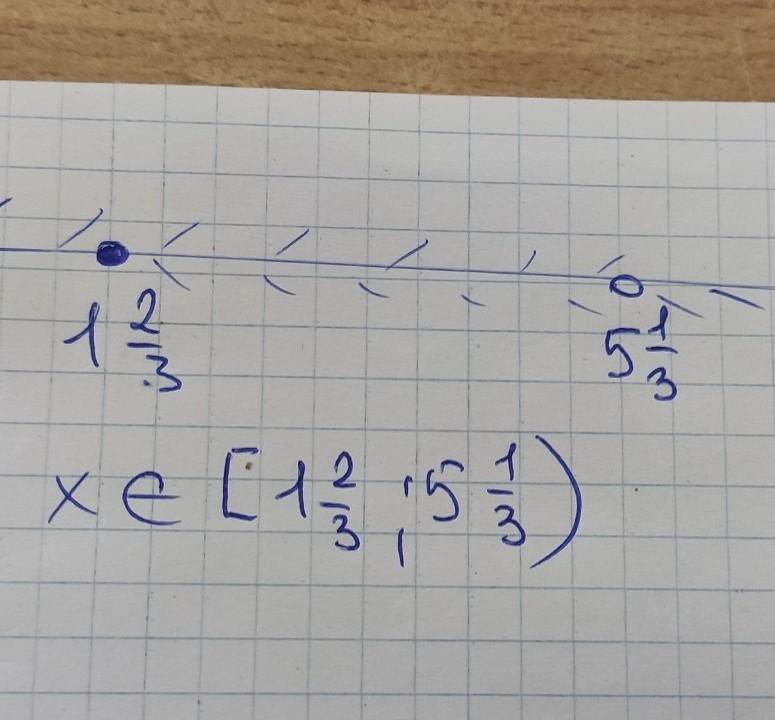 1 2/3 5 1/3
x ∈ [1 2/3 ; 5 1/3)